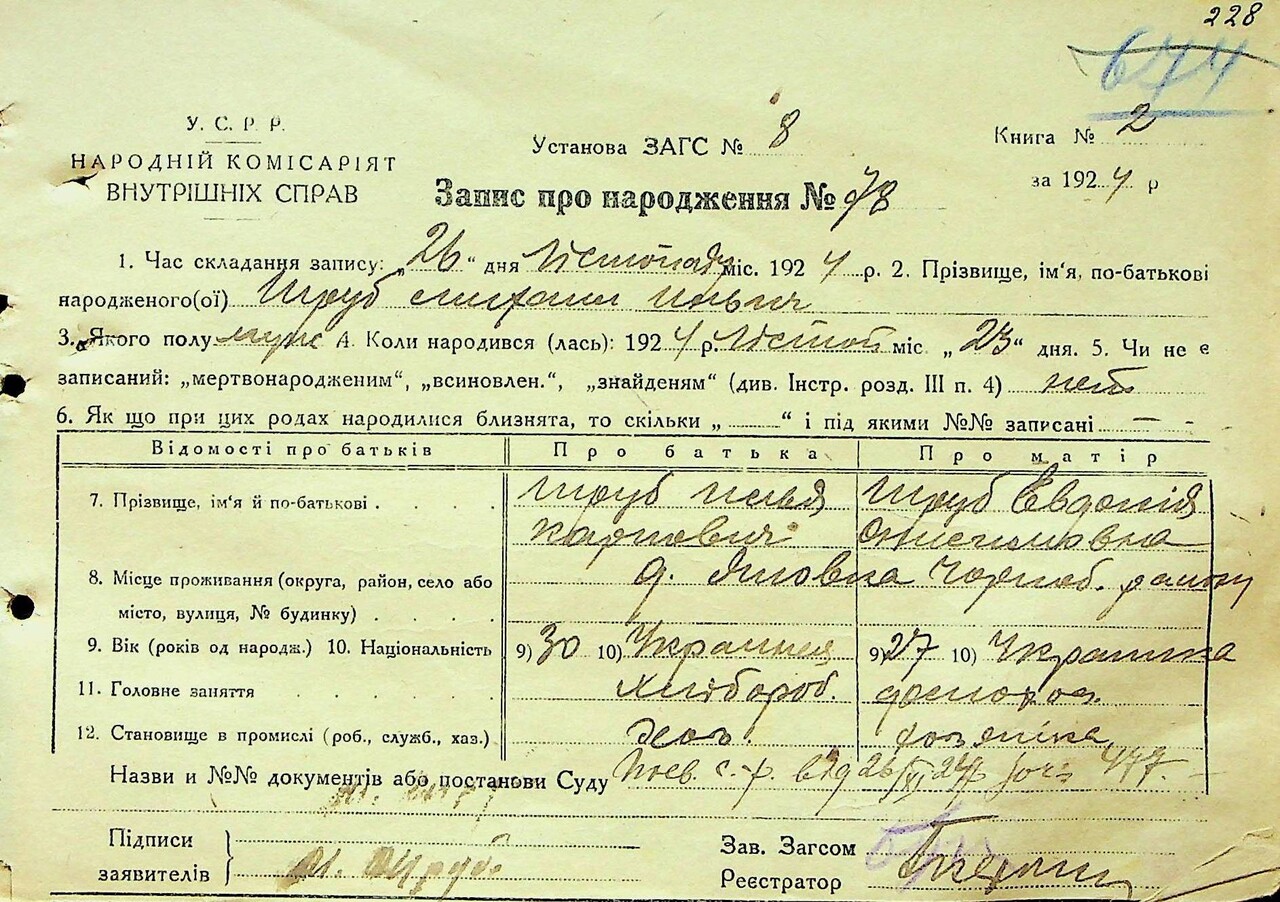 228
644
У. С. Р. Р.
НАРОДНІЙ КОМІСАРІЯТ
ВНУТРІШНІХ СПРАВ
Установа ЗАГС № 8
Книга № 2
за 1924 р
Запис про народження № 78
1. Час складання запису: „26“ дня Лістопада міс. 1924 р. 2. Прізвище, ім‘я, по-батькові
народженого(ої) Шруб Михаил Ильич
3. Якого полу муж 4. Коли народився (лась): 1924 р. Лістоп міс „23“ дня. 5. Чи не є
записаний: „мертвонародженим“, „всиновлен.“, „знайденям“ (див. Інстр. розд. III п. 4) нет
6. Як що при цих родах народилися близнята, то скільки „ “ і під якими №№ записані — -
Відомості про батьків Про батька Про матір
7. Прізвище, ім‘я й по-батькові . . . . Шруб Илья Шруб Евдокія
Карпович Онисимовна
8. Місце проживання (округа, район, село або д. Ямовка Чорноб. району
місто, вулиця, № будинку) . . . .
9. Вік (років од народж.) 10. Національність 9) 30 10) Украинец 9) 27 10) Украинка
11. Головне заняття . . . . . Хлібороб. домохоз.
12. Становище в промислі (роб., служб., хаз.) хоз. хозяйка
Назви и №№ документів або постанови Суду с.-р. від 26/XI 24р 477. -
Підписи
заявителів И. Шруб
Зав. Загсом
Реєстратор